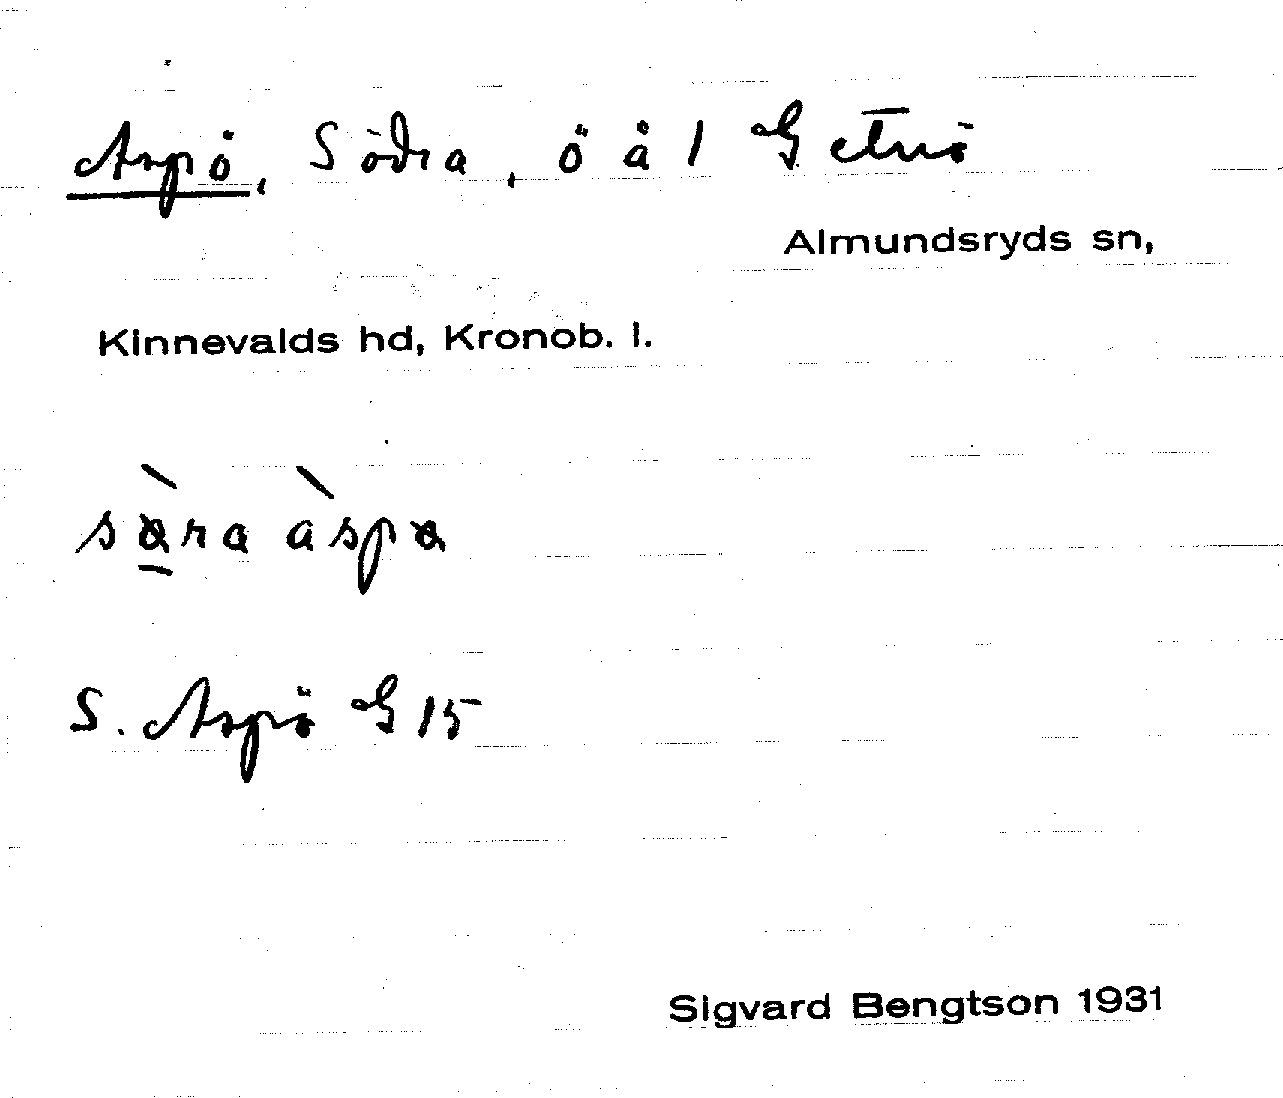 Aspö, Södra, ö å 1 Getnö
Almundsryds sn,
Kinnevalds hd, Kronob. l.
S. Aspö G 15
Sigvard Bengtson 1931